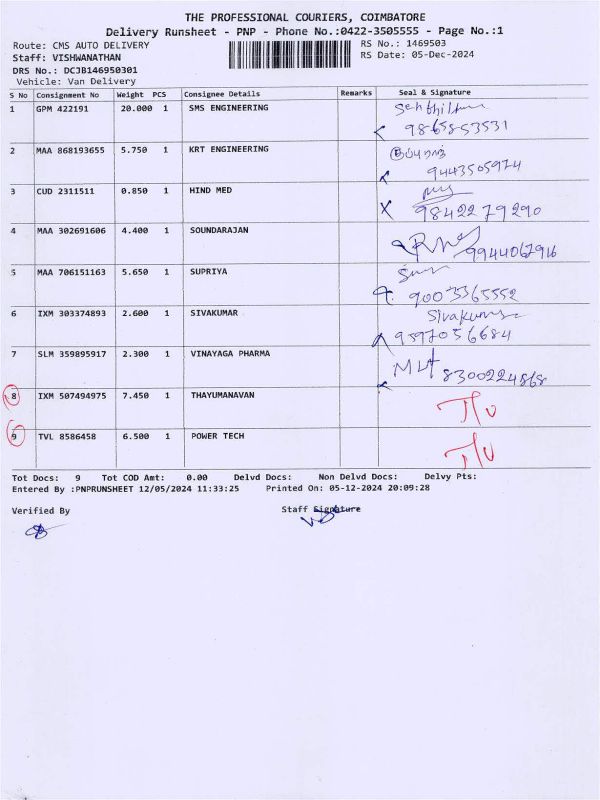 THE PROFESSIONAL COURIERS, COIMBATORE
Delivery Runsheet - PNP - Phone No.:0422-3505555 - Page No.:1
Route: CMS AUTO DELIVERY RS No.: 1469503
Staff: VISHWANATHAN RS Date: 05-Dec-2024
DRS No.: DCJB146950301
Vehicle: Van Delivery
S No Consignment No Weight PCS Consignee Details Remarks Seal & Signature
1 GPM 422191 20.000 1 SMS ENGINEERING
9865853531
2 MAA 868193655 5.750 1 KRT ENGINEERING
9443505974
3 CUD 2311511 0.850 1 HIND MED
98422 79290
4 MAA 302691606 4.400 1 SOUNDARAJAN
9944067916
5 MAA 706151163 5.650 1 SUPRIYA
9003365552
6 IXM 303374893 2.600 1 SIVAKUMAR Sivakumar
9597056684
7 SLM 359895917 2.300 1 VINAYAGA PHARMA
8300224868
8 IXM 507494975 7.450 1 THAYUMANAVAN
9 TVL 8586458 6.500 1 POWER TECH
Tot Docs: 9 Tot COD Amt: 0.00 Delvd Docs: Non Delvd Docs: Delvy Pts:
Entered By :PNPRUNSHEET 12/05/2024 11:33:25 Printed On: 05-12-2024 20:09:28
Verified By Staff Signature